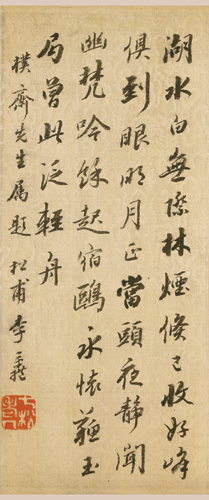 湖水白無際林煙倏已收好峰
俱到眼明月正當頭夜静聞
幽梵吟餘起宿鷗永懷蘓玉
局曽此泛輕舟
樸齋先生屬題 松甫李